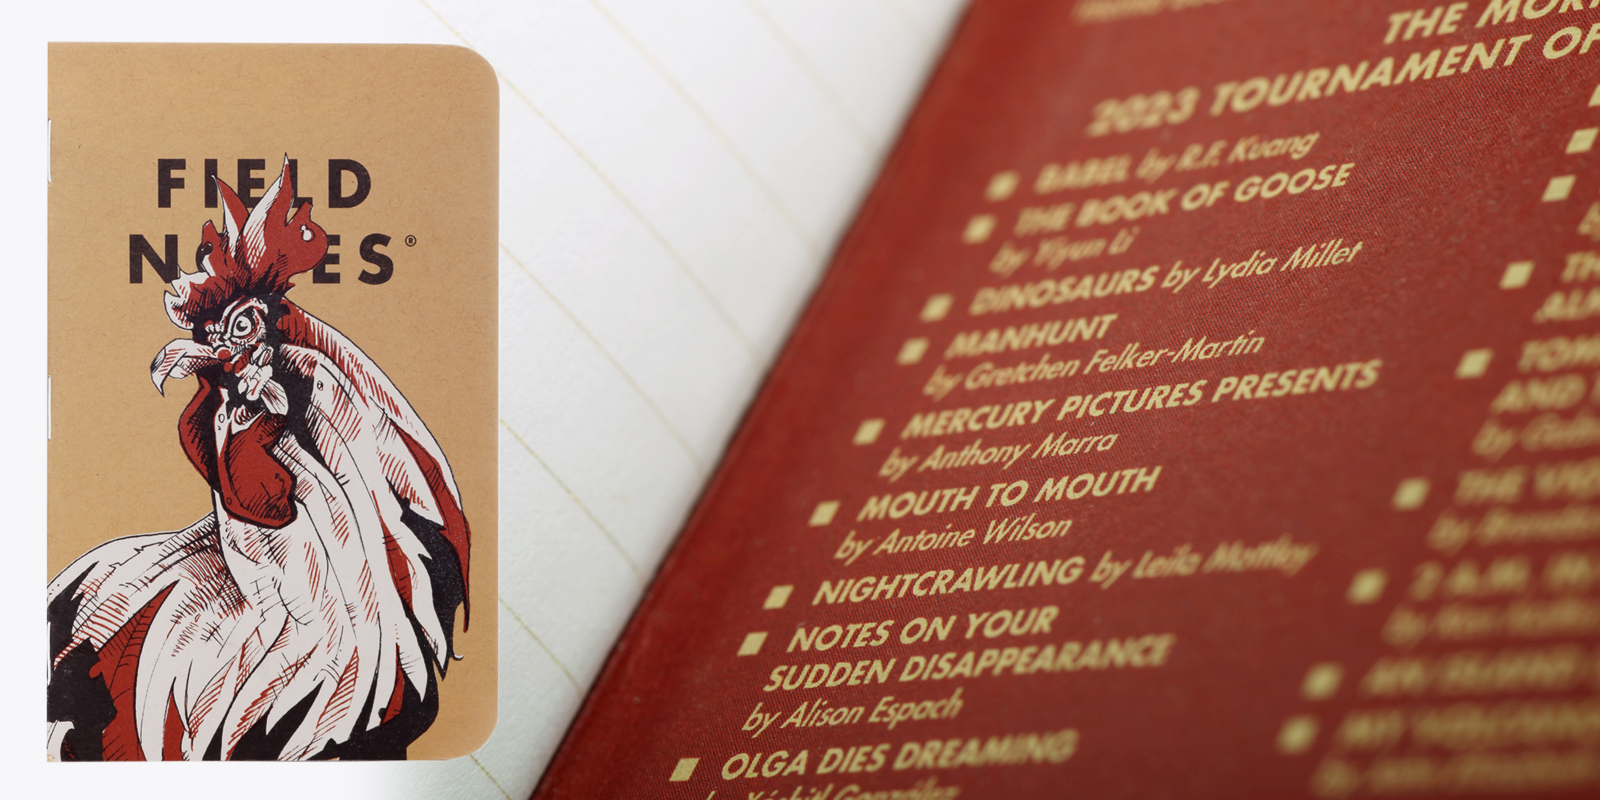 FIELD
NOTES®
THE MOR
2023 TOURNAMENT OF
BABEL by R.F. Kuang
THE BOOK OF GOOSE
by Yiyun Li
DINOSAURS by Lydia Millet
MANHUNT
by Gretchen Felker-Martin
MERCURY PICTURES PRESENTS
by Anthony Marra
MOUTH TO MOUTH
by Antoine Wilson
NIGHTCRAWLING by Leila Mottley
NOTES ON YOUR
SUDDEN DISAPPEARANCE
by Alison Espach
OLGA DIES DREAMING
by Xóchitl González
TH
ALM
TOM
AND T
by Gab
THE VIO
by Brendan
2 A.M. IN